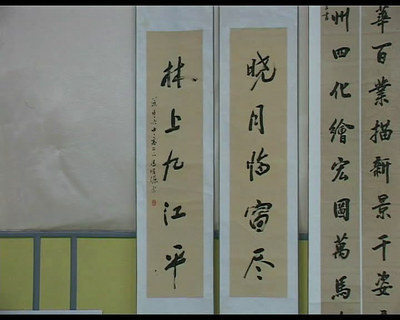 華百業描新景千姿
州四化繪宏圖萬馬
晓月临窗尽
林上九江平